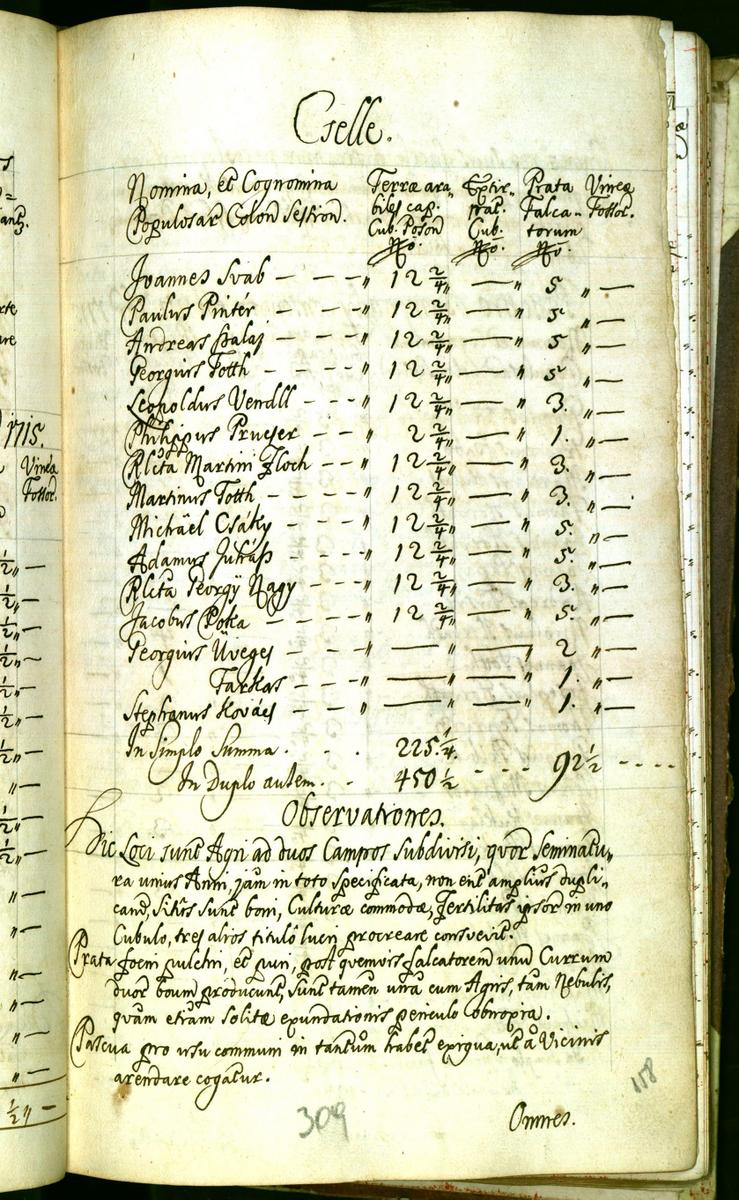 Cselle.
Nomina, et Cognomina Terræ ara- Extir- Prata Vineæ
Populosar Colonᵈ Session. biles cap. pat. Falca- Fossor.
Cub. Poson Cub. torum
Nro. Nro. Nro.
Joannes Svab — — —〃 12 2/4〃 —〃 5 〃—
Paulus Pintér — — —〃 12 2/4〃 —〃 5 〃—
Andreas Szalaj — — —〃 12 2/4〃 —〃 5 〃—
Georgius Totth — — —〃 12 2/4〃 —〃 5 〃—
Leopoldus Vendll — — —〃 12 2/4〃 —〃 3. 〃—
Philippus Pruejer — —〃 2 2/4〃 —〃 1. 〃—
Rlcta Martini Floch — —〃 12 2/4〃 —〃 3. 〃—
Martinus Totth — — —〃 12 2/4〃 —〃 3. 〃—
Michäel Csáky — — —〃 12 2/4〃 —〃 5. 〃—
Adamus Juhász — — —〃 12 2/4〃 —〃 5. 〃—
Rlcta Georgÿ Nagy — — —〃 12 2/4〃 —〃 3. 〃—
Jacobus Poka — — — —〃 12 2/4〃 —〃 5. 〃—
Georgius Üveges — — —〃 —〃 —〃 2 〃—
Farkas — — —〃 —〃 —〃 1. 〃—
Stephanus Kovács — — —〃 —〃 —〃 1. 〃—
In Simplo Summa . . . 225. 1/4.
In Duplo autem . - 450 1/2 - - - 92 1/2 - - - -
Observationes.
Hic Loci sunt Agri ad duos Campos subdivisi, quor Seminatu-
ra unius Anni, jam in toto specificata, non ent amplius dupli-
cand, Sitûs sunt boni, Culturæ commodæ, Fertilitas ipsor in uno
Cubulo, tres alios titulô lucri procreare consvevit.
Prata foeni pulchri, et puri, post quemvis falcatorem unũ Currum
duor boum producunt, sunt tamen una cum Agris, tam Nebulis,
quàm etiam solitæ exundationis periculo obnoxia.
Pascua pro usu communi in tantum habet exigua, ut à Vicinis
arendare cogatur.
Omnes.
309
118
1715.
Vinea
Fossor.